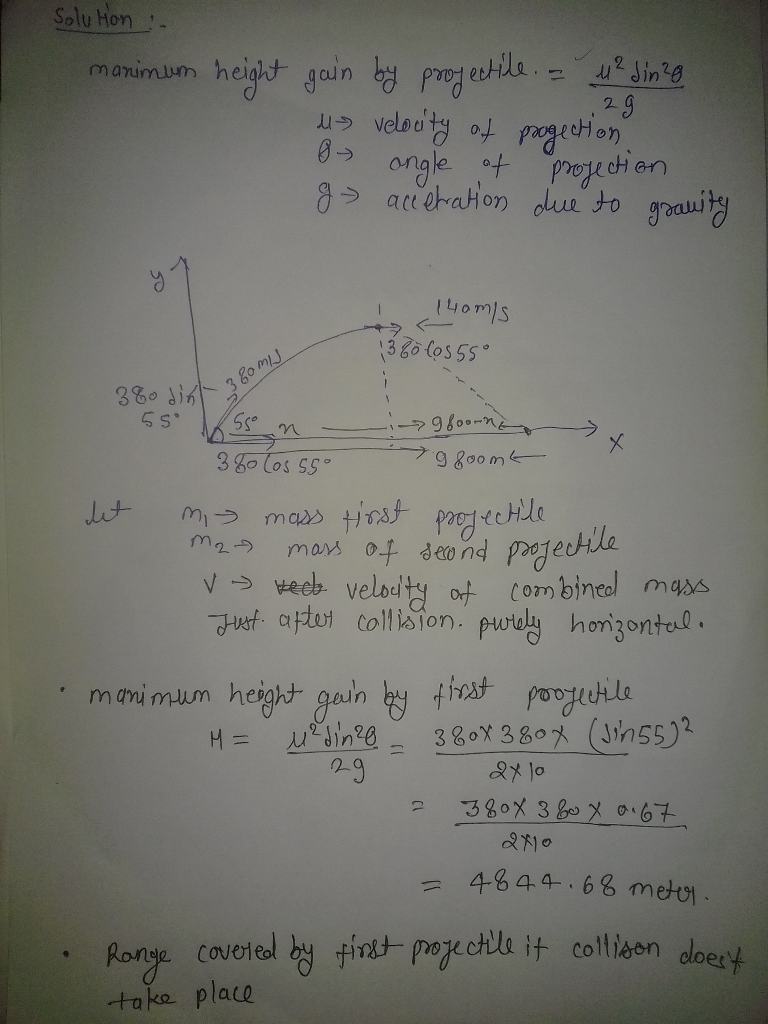 Solution :-
maximum height gain by projectile. = u² sin²θ / 2g
u → velocity of progection
θ → angle of projection
g → acceleration due to gravity
y
140 m/s
380 m/s
380 cos 55°
380 sin 55°
55°
x
9800-x
X
380 cos 55°
9800m
let m₁ → mass first projectile
m₂ → mass of second projectile
V → velocity of combined mass
Just after collision. purely horizontal.
• maximum height gain by first projectile
H = u² sin²θ / 2g = 380 X 380 X (sin55)² / 2X10
= 380X 380 X 0.67 / 2X10
= 4844.68 meter.
• Range covered by first projectile if collison does't
take place